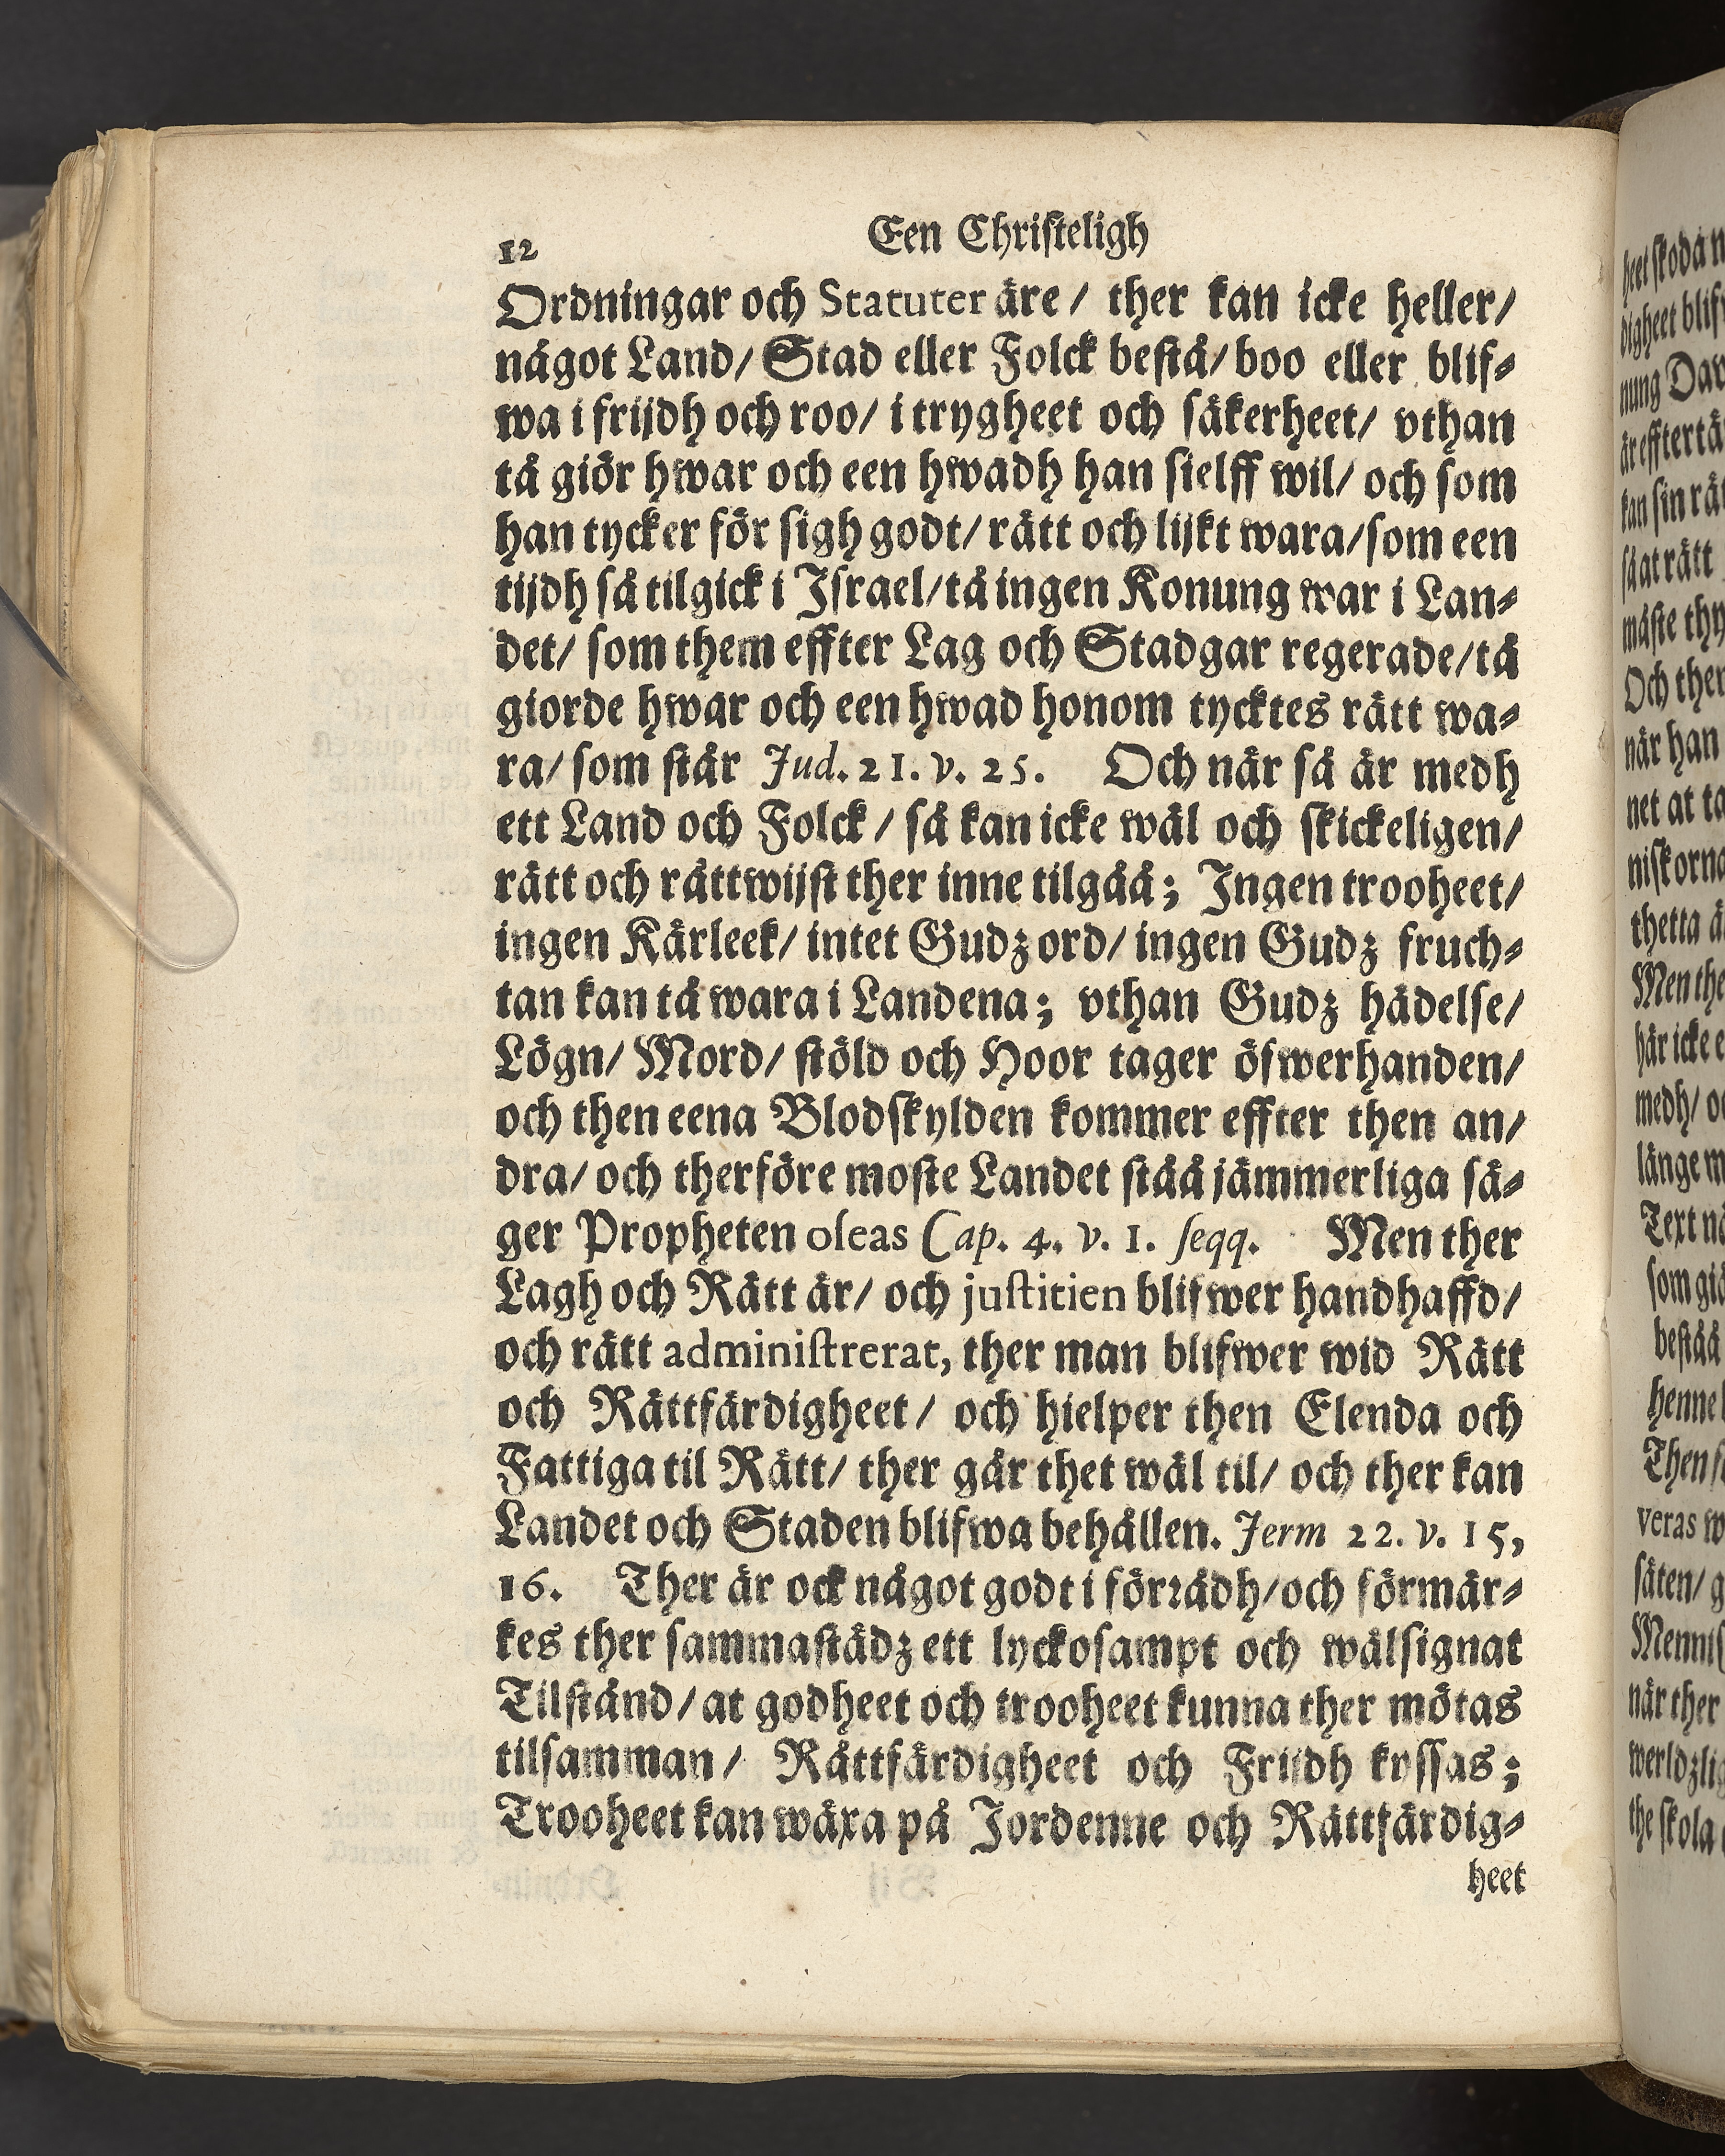 12 Een Christeligh
Ordningar och Statuter äre / ther kan icke heller/
något Land/ Stad eller Folck bestå/ boo eller blif-
wa i frijdh och roo/ i trygheet och säkerheet/ vthan
tå giör hwar och een hwadh han sielff wil/ och som
han tycker för sigh godt/ rätt och lijkt wara/som een
tijdh så tilgick i Israel/tå ingen Konung war i Lan-
det/ som them effter Lag och Stadgar regerade/tå
giorde hwar och een hwad honom tycktes rätt wa-
ra/ som står Jud. 21. v. 25. Och när så är medh
ett Land och Folck / så kan icke wäl och skickeligen/
rätt och rättwijst ther inne tilgåå; Ingen trooheet/
ingen Kärleek/ intet Gudz ord/ ingen Gudz fruch-
tan kan tå wara i Landena; vthan Gudz hädelse/
Lögn/ Mord/ stöld och Hoor tager öfwerhanden/
och then eena Blodskylden kommer effter then an/
dra/ och therföre moste Landet ståå jämmerliga sä-
ger Propheten oleas Cap. 4. v. 1. seqq. Men ther
Lagh och Rätt är/ och justitien blifwer handhaffd/
och rätt administrerat, ther man blifwer wid Rätt
och Rättfärdigheet/ och hielper then Elenda och
Fattiga til Rätt/ ther går thet wäl til/ och ther kan
Landet och Staden blifwa behållen. Jerm 22. v. 15,
16. Ther är ock något godt i förrådh/och förmär-
kes ther sammastädz ett lyckosampt och wälsignat
Tilstånd/at godheet och trooheet kunna ther mötas
tilsamman/ Rättfärdigheet och Frijdh kyssas;
Trooheet kan wäxa på Jordenne och Rättfärdig-
heet